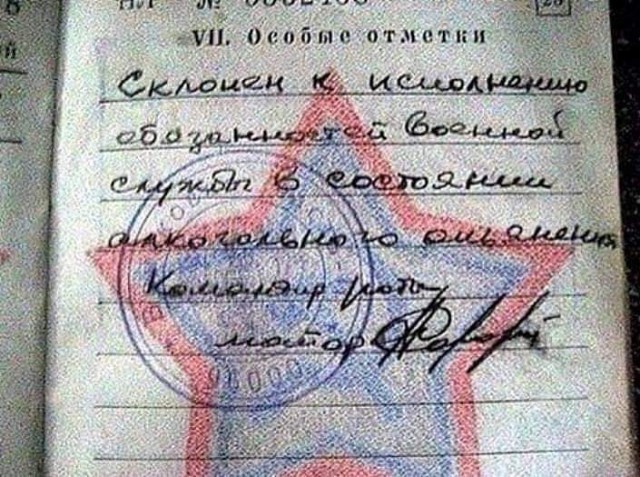 VII. Особые отметки
Склонен к исполнению
обязанностей Военной
службы в состоянии
алкогольного опьянения
Командир роты
майор